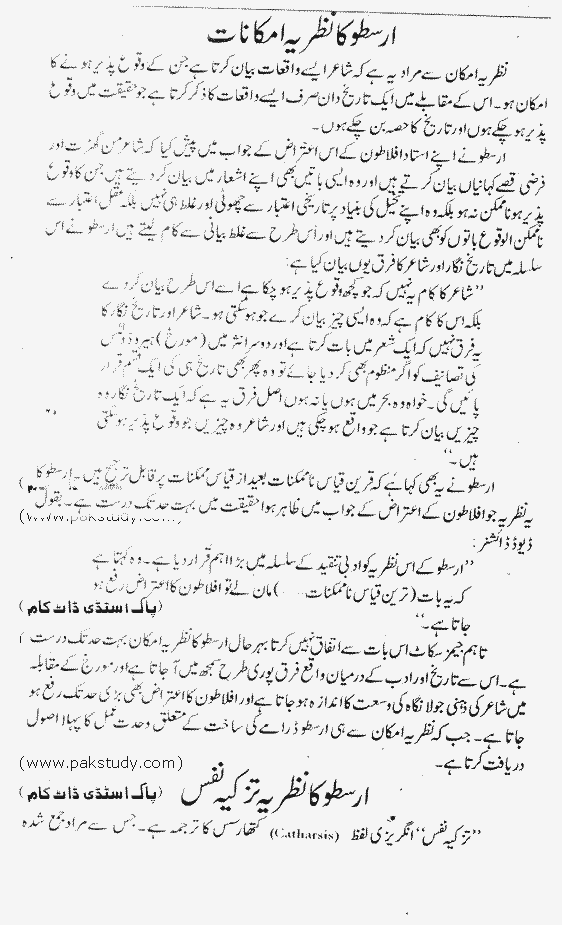 ارسطو کا نظریہ امکانات
نظریہ امکان سے مراد یہ ہے کہ شاعر ایسے واقعات بیان کرتا ہے جن کے وقوع پذیر ہونے کا
امکان ہو۔ اس کے مقابلے میں ایک تاریخ دان صرف ایسے واقعات کا ذکر کرتا ہے جو حقیقت میں وقوع
پذیر ہو چکے ہوں اور تاریخ کا حصہ بن چکے ہوں۔
ارسطو نے اپنے استاد افلاطون کے اس اعتراض کے جواب میں پیش کیا کہ شاعر من گھڑت اور
فرضی قصے کہانیاں بیان کرتے ہیں اور وہ ایسی باتیں بھی اپنے اشعار میں بیان کر دیتے ہیں جن کا وقوع
پذیر ہونا ممکن نہ ہو بلکہ وہ اپنے تخیل کی بنیاد پر تاریخی اعتبار سے جھوٹی اور غلط ہی نہیں بلکہ عقلی اعتبار سے
ناممکن الوقوع باتوں کو بھی بیان کر دیتے ہیں اور اس طرح سے غلط بیانی سے کام لیتے ہیں ارسطو نے اس
سلسلہ میں تاریخ نگار اور شاعر کا فرق یوں بیان کیا ہے:
”شاعر کا کام یہ نہیں کہ جو کچھ وقوع پذیر ہو چکا ہے اسے اس طرح بیان کر دے
بلکہ اس کا کام ہے کہ وہ ایسی چیز بیان کرے جو ہو سکتی ہو۔ شاعر اور تاریخ نگار کا
یہ فرق نہیں کہ ایک شعر میں بات کرتا ہے اور دوسرا نثر میں (مورخ) ہیروڈوٹس
کی تصانیف کو اگر منظوم بھی کر دیا جائے تو وہ پھر بھی تاریخ ہی کی ایک قسم قرار
پائیں گی۔ خواہ وہ بحر میں ہوں یا نہ ہوں اصل فرق یہ ہے کہ ایک تاریخ نگار وہ
چیزیں بیان کرتا ہے جو واقع ہو چکی ہیں اور شاعر وہ چیزیں جو وقوع پذیر ہو سکتی
ہیں۔“
ارسطو نے یہ بھی کہا ہے کہ قرین قیاس ناممکنات بعید از قیاس ممکنات پر قابل ترجیح ہیں۔ ارسطو کا
یہ نظریہ جو افلاطون کے اعتراض کے جواب میں ظاہر ہوا حقیقت میں بہت حد تک درست ہے۔ بقول
(www.pakstudy.com)
ڈیوڈ ڈائشز:
”ارسطو کے اس نظریہ کو ادبی تنقید کے سلسلہ میں بڑا اہم قرار دیا ہے۔ وہ کہتا ہے
کہ یہ بات (قرین قیاس ناممکنات) مان لے تو افلاطون کا اعتراض رفع ہو
(پاک اسٹڈی ڈاٹ کام)
جاتا ہے۔“
تاہم جیمز سکاٹ اس بات سے اتفاق نہیں کرتا بہر حال ارسطو کا نظریہ امکان بہت حد تک درست
ہے۔ اس سے تاریخ اور ادب کے درمیان واقع فرق پوری طرح سمجھ میں آ جاتا ہے اور مورخ کے مقابلہ
میں شاعر کی ذہنی جولانگاہ کی وسعت کا اندازہ ہو جاتا ہے اور افلاطون کا اعتراض بھی بڑی حد تک رفع ہو
جاتا ہے۔ جب کہ نظریہ امکان سے ہی ارسطو ڈرامے کی ساخت کے متعلق وحدت عمل کا پہلا اصول
دریافت کرتا ہے۔
(www.pakstudy.com)
ارسطو کا نظریہ تزکیہ نفس
(پاک اسٹڈی ڈاٹ کام)
”تزکیہ نفس“ انگریزی لفظ (Catharsis) کتھارسس کا ترجمہ ہے۔ جس سے مراد جمع شدہ